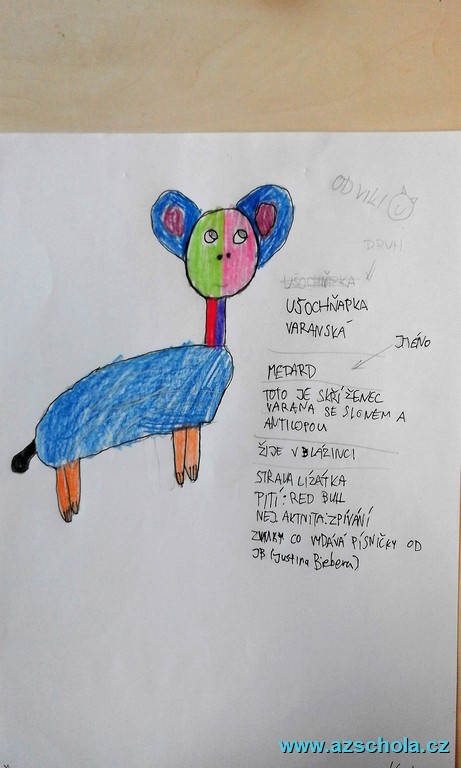 OD VILI
DRUH
UŠOCHŇAPKA
UŠOCHŇAPKA
VARANSKÁ
JMÉNO
MEDARD
TOTO JE SKŘÍŽENEC
VARANA SE SLONEM A
ANTILOPOU
ŽIJE V BLÁZINCI
STRAVA LÍZÁTKA
PITÍ: RED BULL
NEJ AKTIVITA: ZPÍVÁNÍ
ZVUKY CO VYDÁVÁ PÍSNIČKY OD
JB (Justina Biebera)
www.azschola.cz